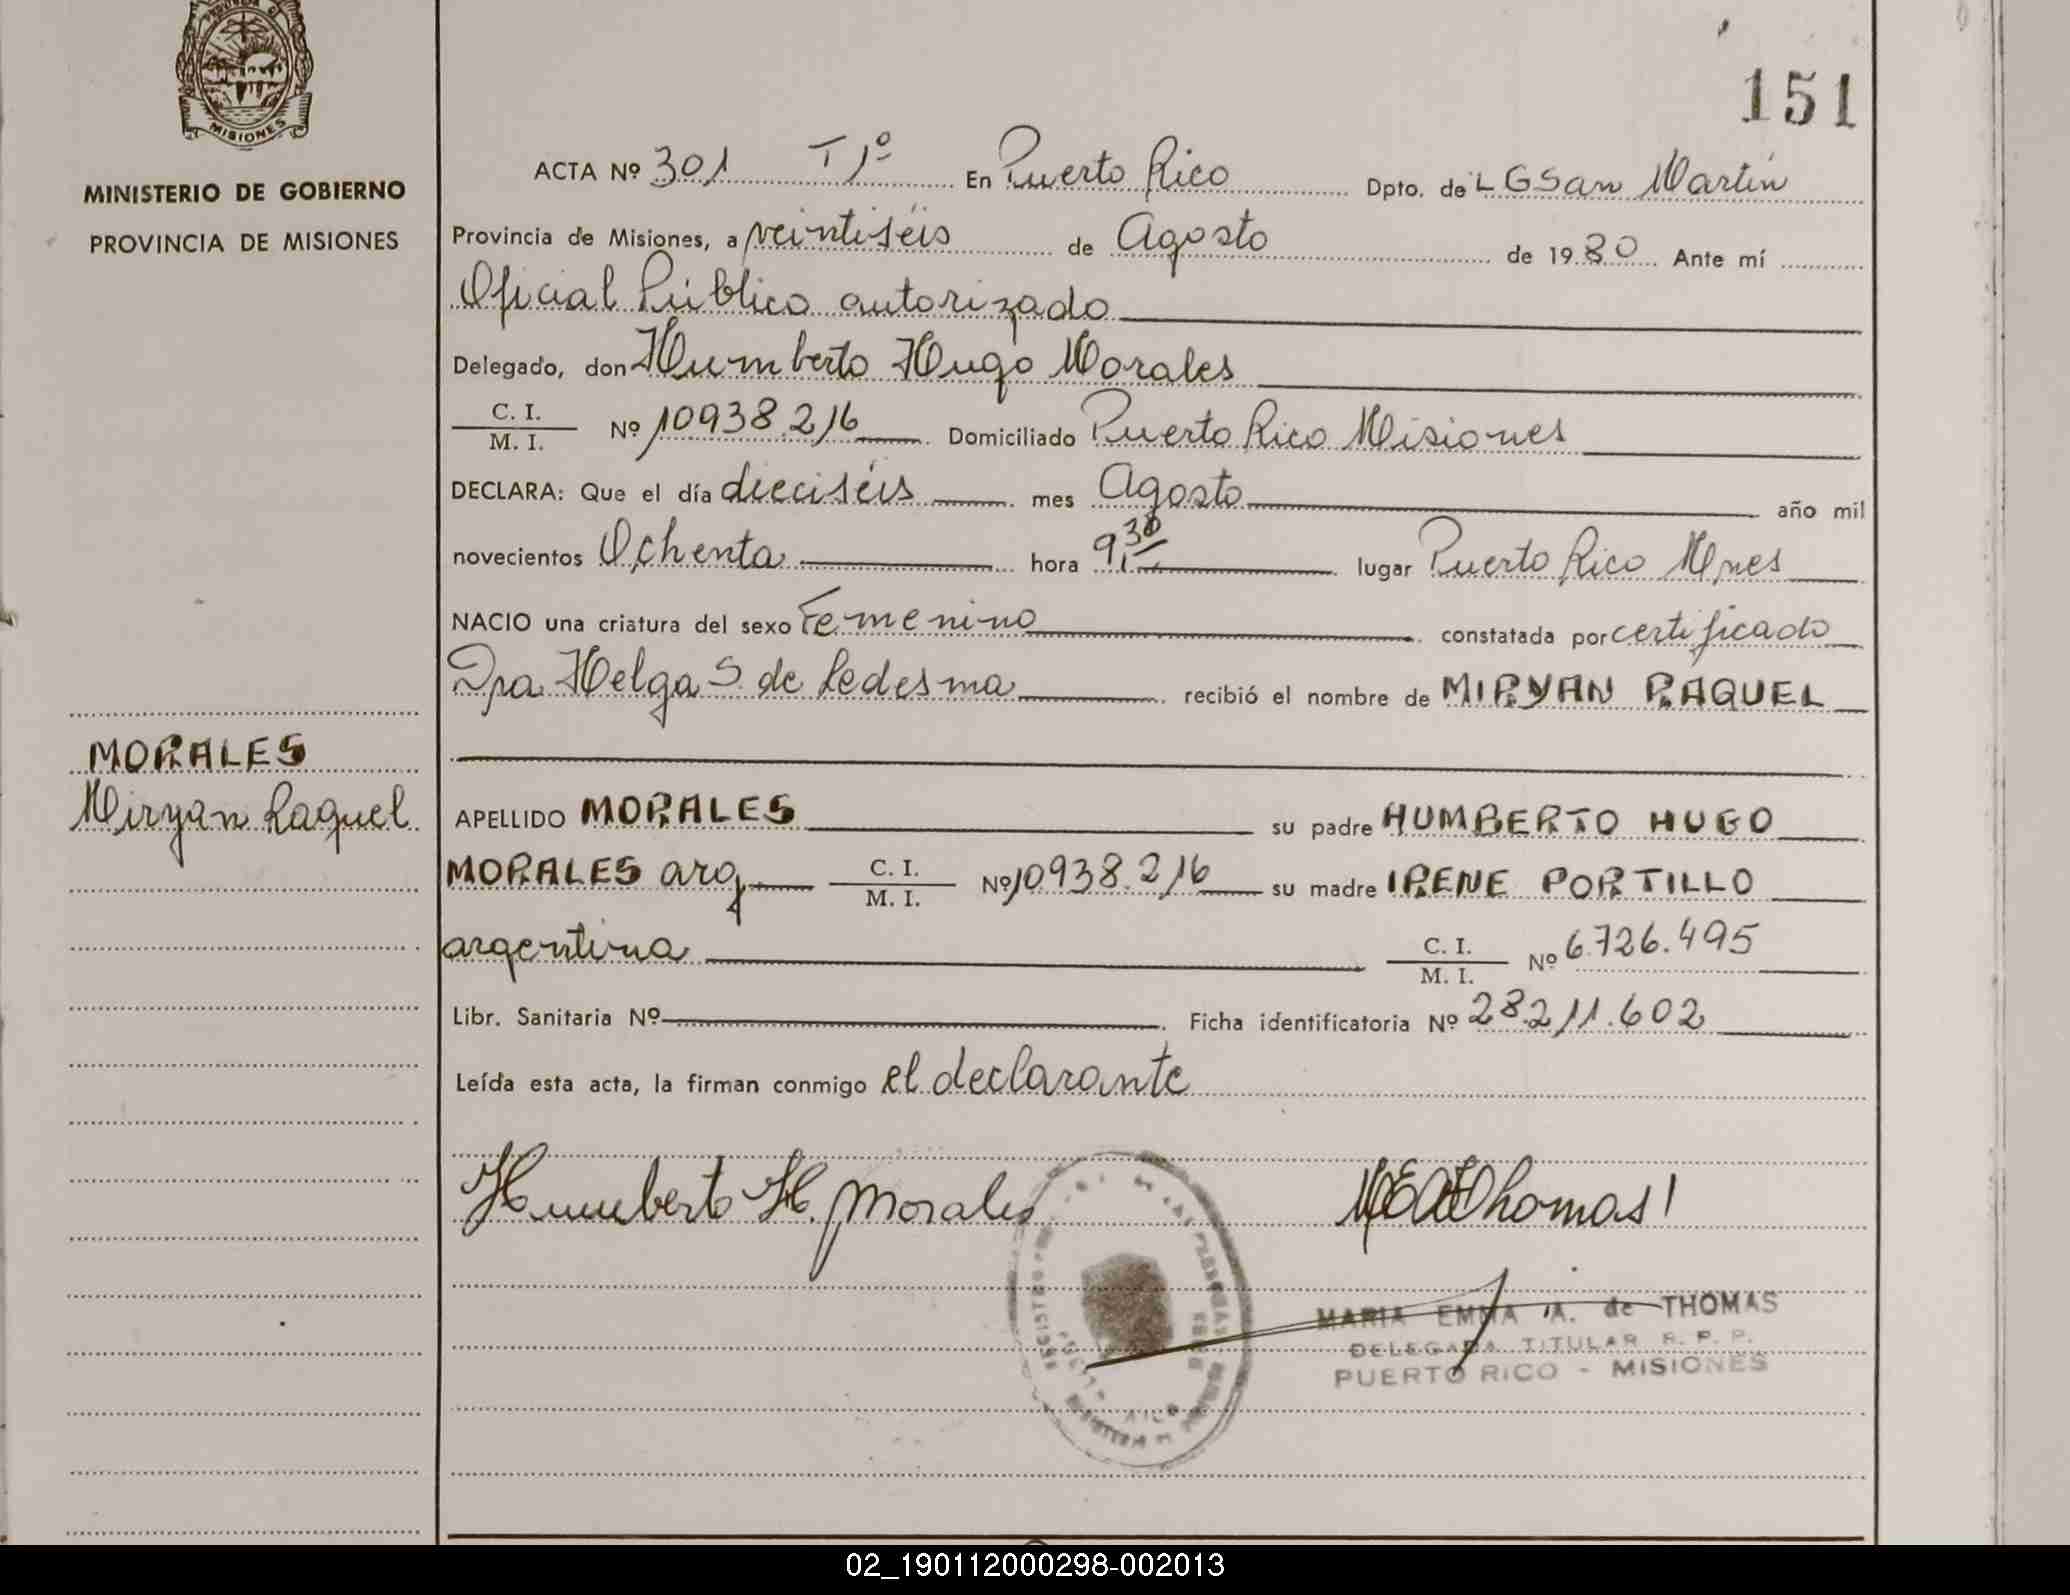 151
MISIONES
MINISTERIO DE GOBIERNO
PROVINCIA DE MISIONES
MORALES
Miryan Raquel
ACTA Nº 301 T 1º En Puerto Rico Dpto. de L G San Martín
Provincia de Misiones, a veintiséis de Agosto de 1980 Ante mí
Oficial Público autorizado
Delegado, don Humberto Hugo Morales
C. I.
M. I. Nº 10938.216 Domiciliado Puerto Rico Misiones
DECLARA: Que el día dieciséis mes Agosto año mil
novecientos Ochenta hora 9,30 lugar Puerto Rico Mnes
NACIO una criatura del sexo Femenino constatada por certificado
Dra Helga S. de Ledesma recibió el nombre de MIRYAN RAQUEL
APELLIDO MORALES su padre HUMBERTO HUGO
MORALES arg C. I. M. I. Nº 10938.216 su madre IRENE PORTILLO
argentina C. I. M. I. Nº 6.726.495
Libr. Sanitaria Nº Ficha identificatoria Nº 28.211.602
Leída esta acta, la firman conmigo el declarante
Humberto H. Morales
MARIA EMMA A. de THOMAS
DELEGADA TITULAR R. P. P.
PUERTO RICO - MISIONES
02_190112000298-002013